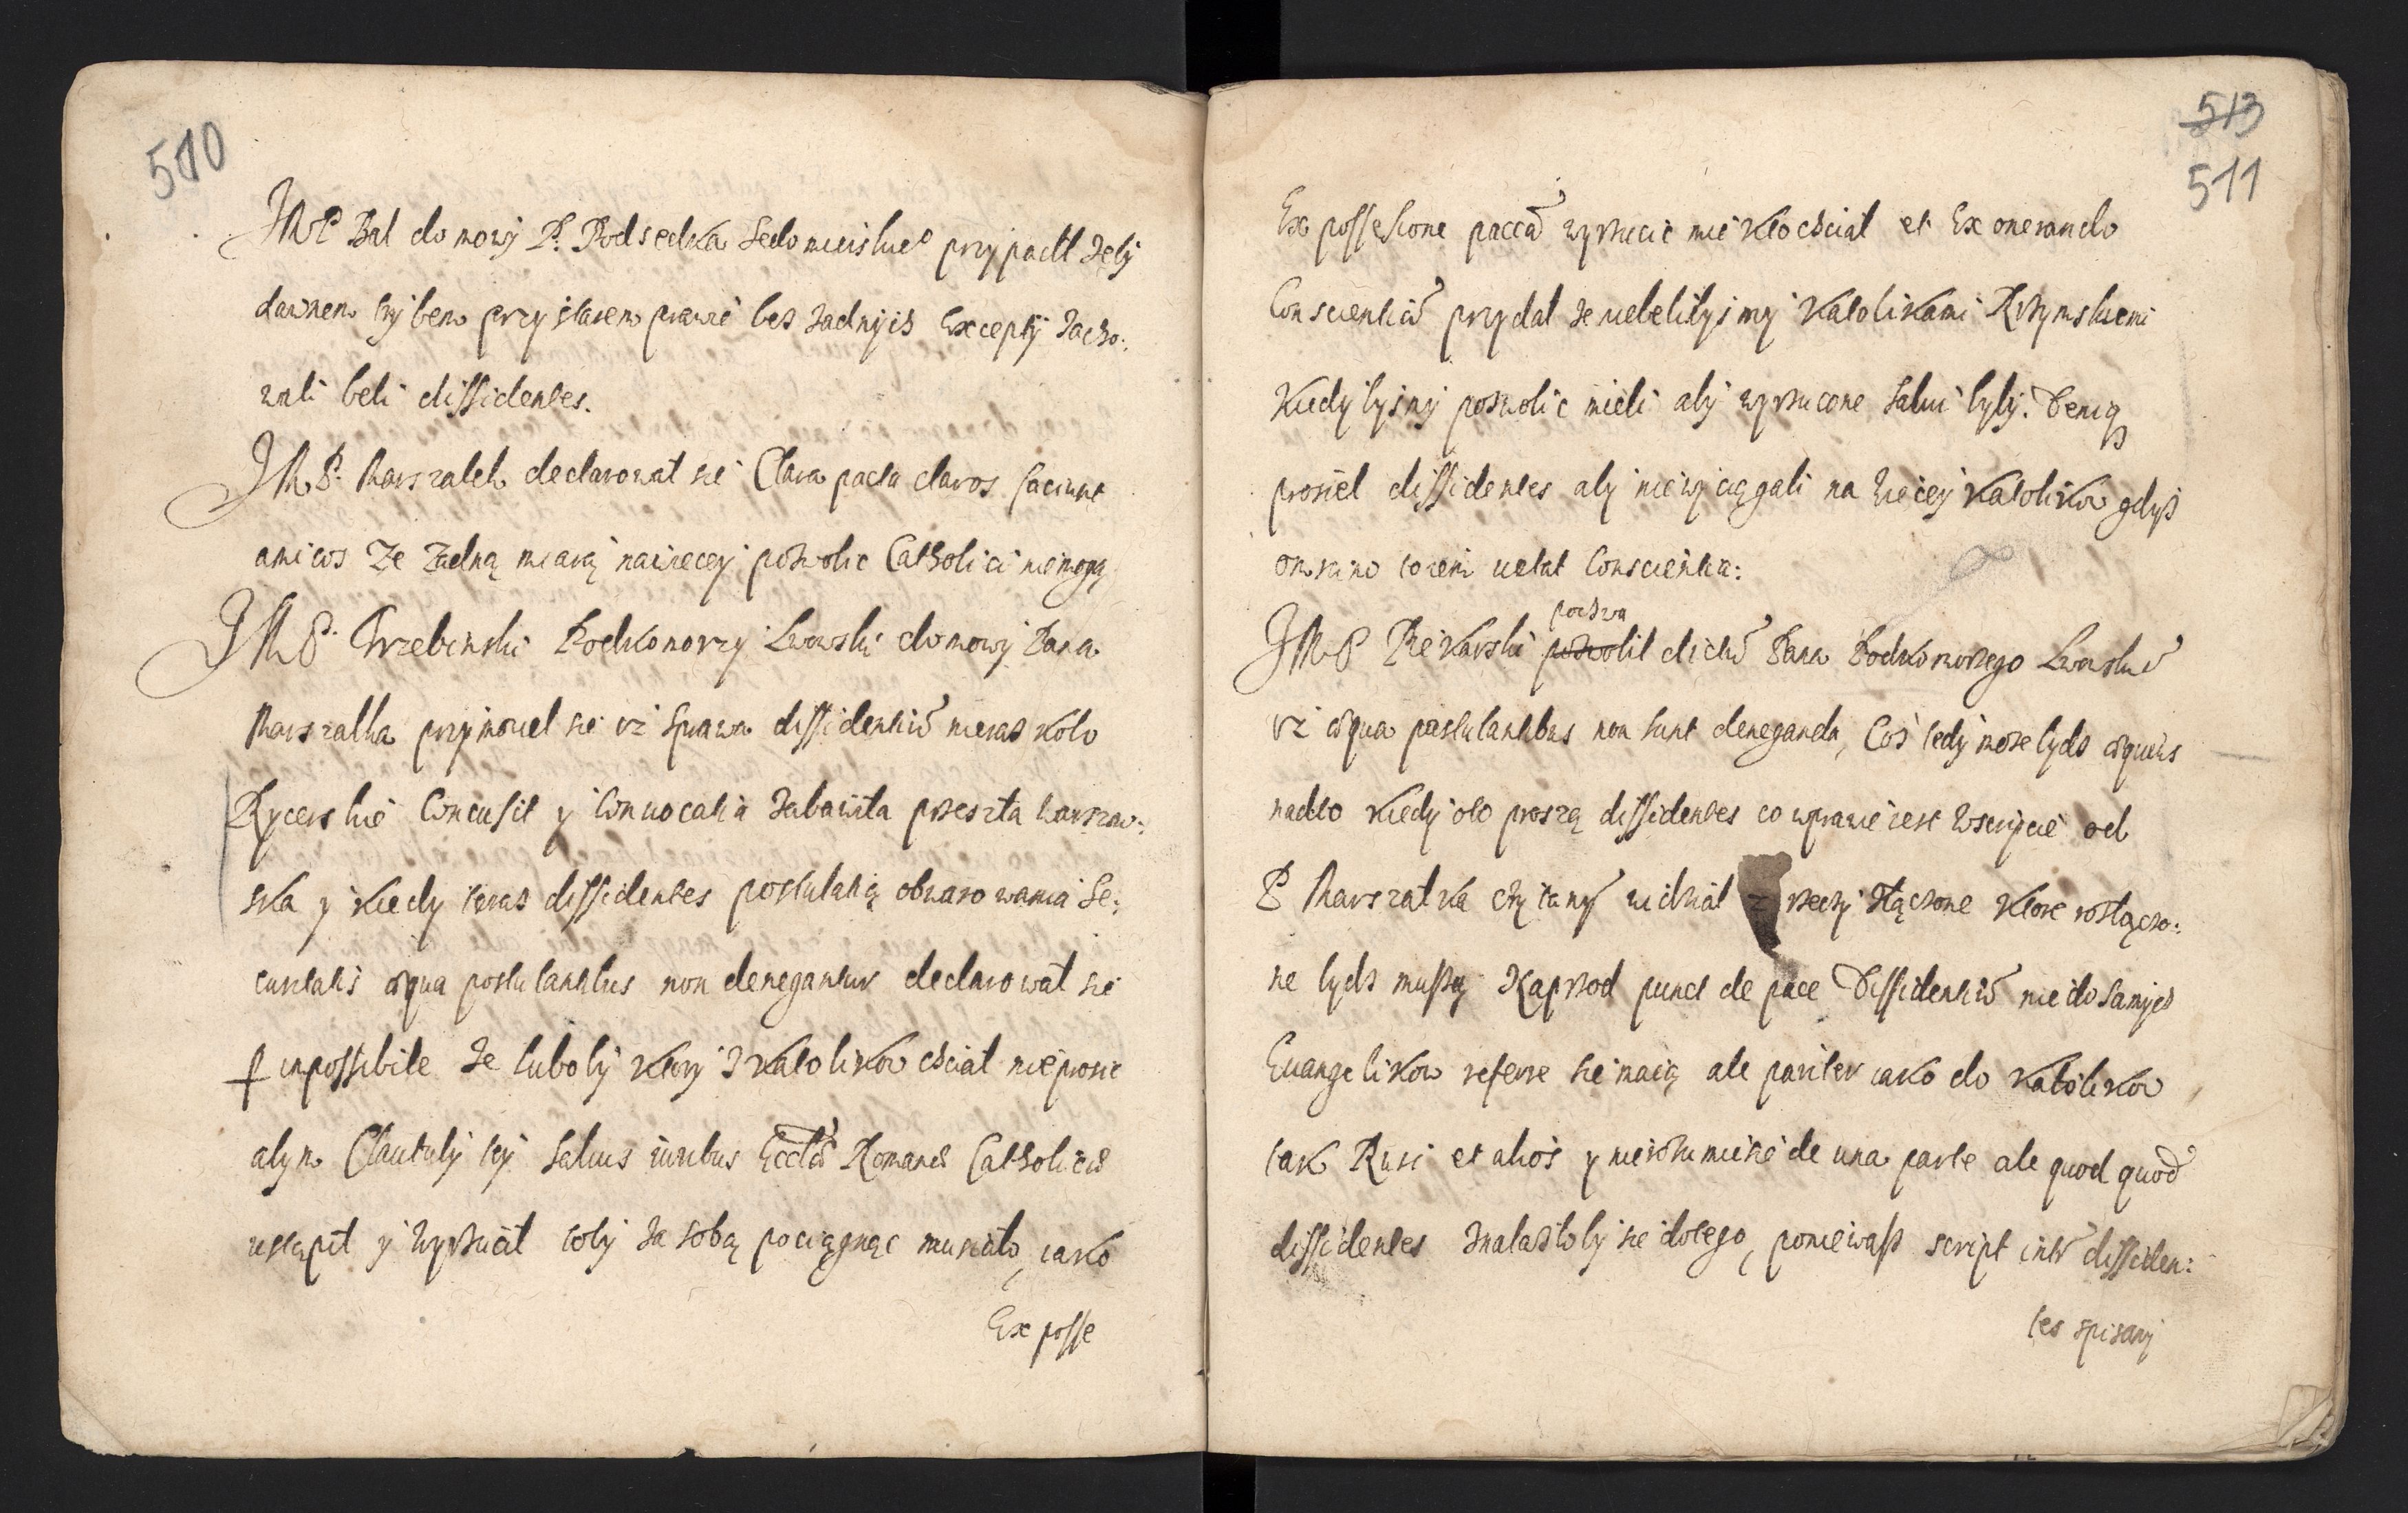 510
JMP Bal do mowy P. Podsędka Sędomirskieo przypadł zeby
dawnem trybem przy starem prawie bes zadnyih Excepty zacho:
wali beli dissidentes.
JMP. Marszalek declarował sie Clara pacta claros faciunt
amicos ze zadną miarą nawiecey pozwolic Catholici niemogą
JMP. Grzebinski Podkomorzy Lwowski do mowy Pana
Marszalka przymowiel sie iz sprawa dissidentiū nieras koło
Rycerskie Concusit y Convocatia zabawiła przeszła warszaw:
ska y kiedy teras dissidentes postulatią obwarowania Se:
curitatis æqua postulantibus non denegantur declarował sie
impossibile ze luboby ktory z Katolikow chciał nieprosic
abym Clausuly tey Salvis iuribus Eccliæ Romanæ Catholicæ
ustąpił y wyrzucił toby za sobą pociągnąc musiało, iako
Ex posse
513
511
Ex possessione paccā wyrzucic mie kto chciał et Exonerando
Conscientiā przydał ze niebelibysmy Katolikami Rzymskiemi
Kiedybysmy pozwolic mieli aby wyrzucone Salvi byly. Deniq
prosiel dissidentes aby niewyciągali na wiecey Katolikow gdysz
omnino vetat Conscientia:
podzwa
JMP Piekarski pozwolil dictū Pana Podkomorzego Lwowskiē
iz æqua postulantibus non sunt deneganda, Coż tedy może bydz æquius
nadto kiedy oto proszą dissidentes co w prawie iest wscripcie od
P Marszałka czytanÿ widział z rzeczy złączone ktore rozłączo:
ne bydz muszą Naprzod punct de pace Dissidentiū nie do samych
Euangelikow referre sie maią ale pariter iako do Katolikow
tak Rusi et alios y nierozumie sie de una parte ale quod quod
dissidentes znalazłoby sie do tego, poniewasz script intr dissiden:
tes spisany